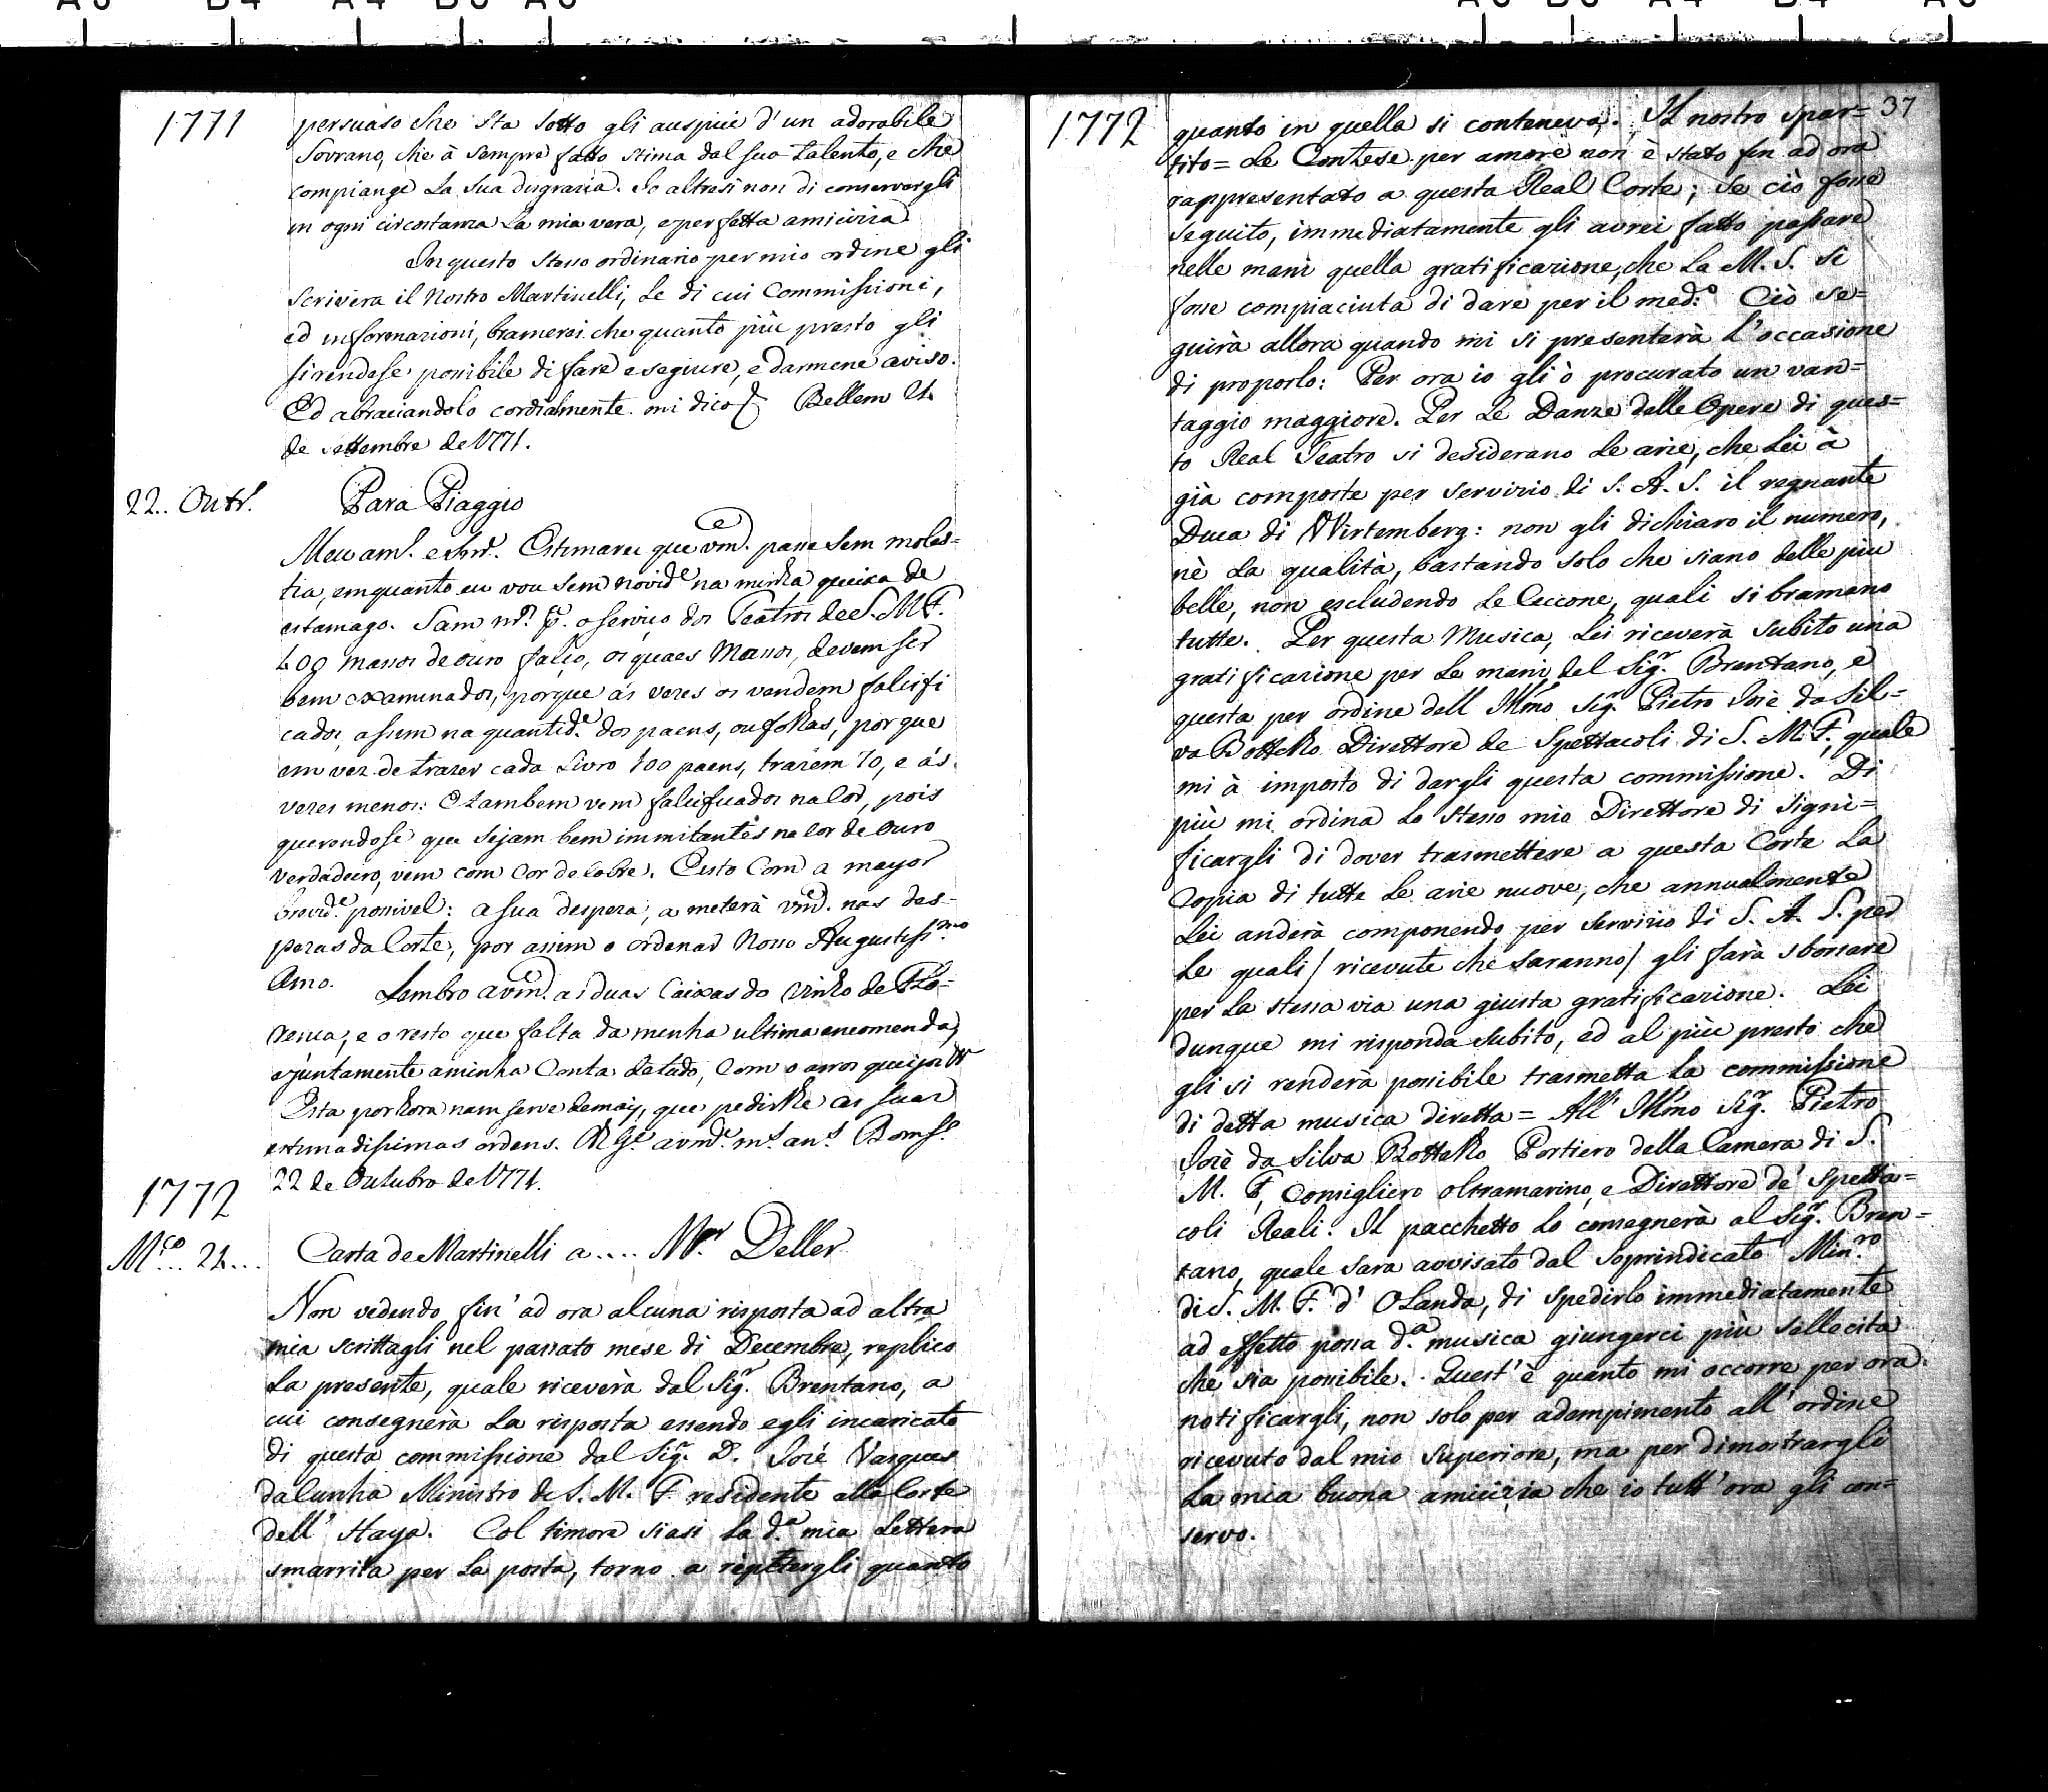 1771
persuaso che sta sotto gli auspici d'un adorabile
Sovrano, che à sempre fatto stima dal suo talento, e che
compiange la sua disgrazia. Io altresì non di conservargli
in ogni circostanza la mia vera, e perfetta amicizia
In questo stesso ordinario per mio ordine gli
scrivera il Nostro Martinelli, le di cui Commissioni,
ed informazioni, bramerei che quanto più presto gli
si rendese possibile di fare eseguire, e darmene aviso.
Ed abraciandolo cordialmente mi dico Bellem 24
de settembre de 1771.
22.. Outr.
Para Piaggio
Meu am.º e Snr. Estimarei que vm.ce passe sem moles=
tia, emquanto eu vou sem novid.e na minha queixa de
estamago. Sam o serviço dos Teatros de S. M. F.
massos de ouro falço, os quaes Massos, devem ser
bem examinados, porque ás vezes os vendem falcifi
cados, assim na quantid.e dos paens, ou folhas, por que
em vez de trazer cada Livro 100 paens, trazem 70, e ás
vezes menos: E tambem vem falcificados na Cor, pois
querendose que sejam bem immitantes na cor de Ouro
verdadeiro, vem com Cor de Cobre. Esto Com a mayor
brevid.e possivel: a sua despeza, a meterà vm.ce nas des=
pezas da Corte, por assim o ordenar Nosso Augustiss.mo
Amo.
Lembro a vm.ce as duas Caixas do vinho de Flo=
rença, e o resto que falta da minha ultima encomenda,
e juntamente a minha Conta datado, Com o arros queijos
Esta por hora nam serve demais, que pedirlhe as suas
estimadissimas ordens. D.s G.e a vm.ce m.s an.s Bomf.º
22 de Outubro de 1771.
1772
M.ço... 24...
Carta de Martinelli a .... M.r Deller
Non vedendo fin' ad ora alcuna risposta ad altra
mia scrittagli nel passato mese di Decembre, replico
la presente, quale riceverà dal Sig.r Brentano, a
cui consegnerà la risposta essendo egli incaricato
di questa commissione dal Sig.r D. Josè Vasques
da Cunha Ministro de S. M. F. residente alla Corte
dell' Haya. Col timore siasi la d.a mia lettera
smarrita per la posta, torno a repetergli quanto
1772
37
quanto in quella si conteneva. Il nostro spar=
tito= Le Contese per amore non è stato fin ad ora
rappresentato a questa Real Corte; se ciò fosse
seguito, immediatamente gli avrei fatto passare
nelle mani quella gratificazione, che la M. S. si
fosse compiaciuta di dare per il med.º Ciò se=
guirà allora quando mi si presenterà l'occasione
di proporlo: Per ora io gli ò procurato un van=
taggio maggiore. Per le Danze delle Opere di ques=
to Real Teatro si desiderano le arie, che Lei à
già composte per servizio di S. A. S. il regnante
Duca di Wirtemberg: non gli dichiaro il numero,
nè la qualità, bastando solo che siano delle piu
belle, non escludendo le Ciccone, quali si bramano
tutte. Per questa Musica, Lei riceverà subito una
gratificazione per le mani del Sig.r Brentano, e
questa per ordine dell Illmo Sig.r Pietro Josè da Sil=
va Bottelho Direttore de Spettacoli di S. M. F., quale
mi à imposto di dargli questa commissione. Di
più mi ordina lo stesso mio Direttore di signi=
ficargli di dover trasmettere a questa Corte la
Copia di tutte le arie nuove, che annualmente
Lei anderà componendo per servizio di S. A. S. per
le quali / ricevute che saranno / gli farà sborsare
per la stessa via una giusta gratificazione. Lei
dunque mi risponda subito, ed al più presto che
gli si renderà possibile trasmetta la commissione
di detta musica diretta= All' Illmo Sig.r Pietro
Josè da Silva Bottelho Portiero della Camera di S.
M. F., Consigliero oltramarino, e Direttore de' Spetta=
coli Reali. Il pacchetto lo consegnerà al Sig.r Bren=
tano, quale sara avvisato dal soprindicato Min.ro
di S. M. F. d' Olanda, di spedirlo immediatamente
ad effetto possa d.a musica giungerci più sollecita
che sia possibile. Quest' è quanto mi occorre per ora
notificargli, non solo per adempimento all' ordine
ricevuto dal mio superiore, ma per dimostrargli
la mia buona amicizia che io tutt' ora gli con=
servo.